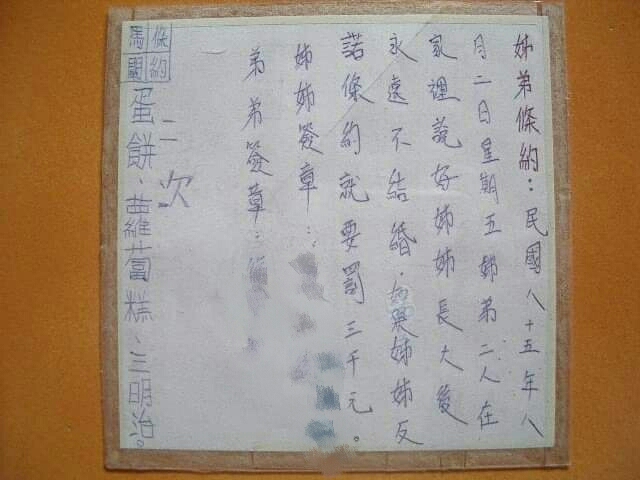 姊弟條約：民國八十五年八
月二日星期五姊弟二人在
家裡說好姊姊長大後
永遠不結婚．如果姊姊反
諾條約就要罰三千元。
姊姊簽章：
弟弟簽章：
二次
馬關
條約
蛋餅、蘿蔔糕、三明治。